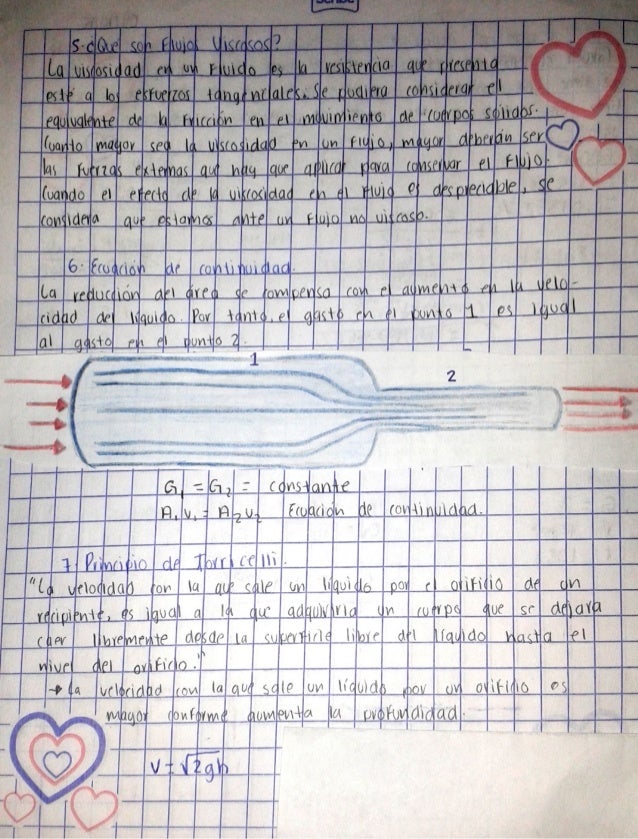 5.-¿Que son Flujos Viscosos?
La viscosidad en un Fluido es la resistencia que presenta
este a los esfuerzos tangenciales. Se pudiera considerar el
equivalente de la Fricción en el movimiento de cuerpos sólidos.
Cuanto mayor sea la viscosidad en un Flujo, mayor deberán ser
las Fuerzas externas que hay que aplicar para conservar el Flujo.
Cuando el efecto de la viscosidad en el Flujo es despreciable, se
considera que estamos ante un Flujo no viscoso.
6.- Ecuación de continuidad.
La reducción del área se compensa con el aumento en la velo-
cidad del líquido. Por tanto, el gasto en el punto 1 es igual
al gasto en el punto 2.
1
2
G₁ = G₂ = constante
A₁v₁ = A₂v₂ Ecuación de continuidad.
7. Principio de Torricelli.
"La velocidad con la que sale un líquido por el orificio de un
recipiente, es igual a la que adquiriría un cuerpo que se dejara
caer libremente desde la superficie libre del líquido hasta el
nivel del orificio."
→ La velocidad con la que sale un líquido por un orificio es
mayor conforme aumenta la profundidad.
V = √2gh